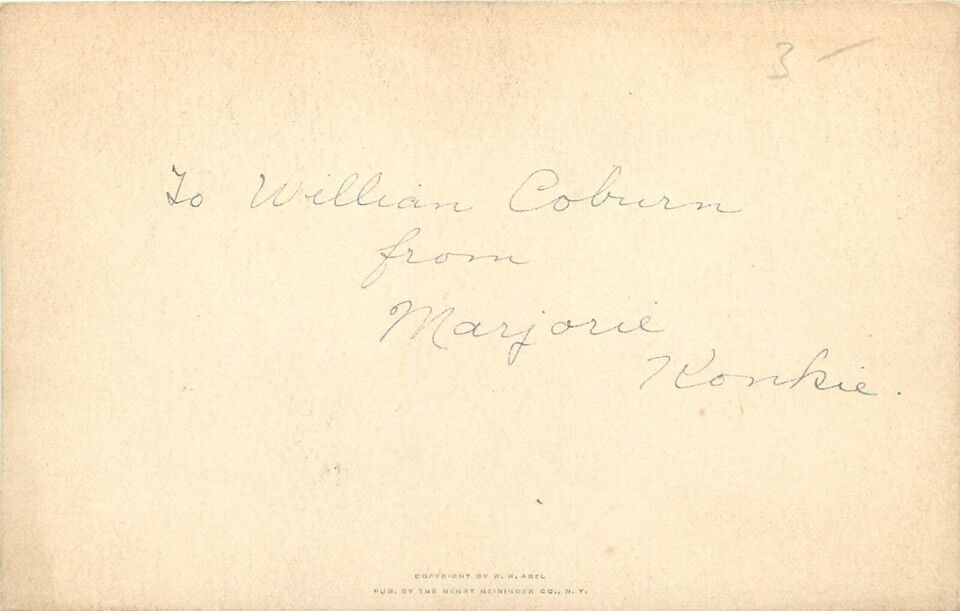 3 -
To Willian Coburn
from
Marjorie
Konkie.
COPYRIGHT BY W. H. ABEL
PUB. BY THE HENRY HEININGER CO., N. Y.